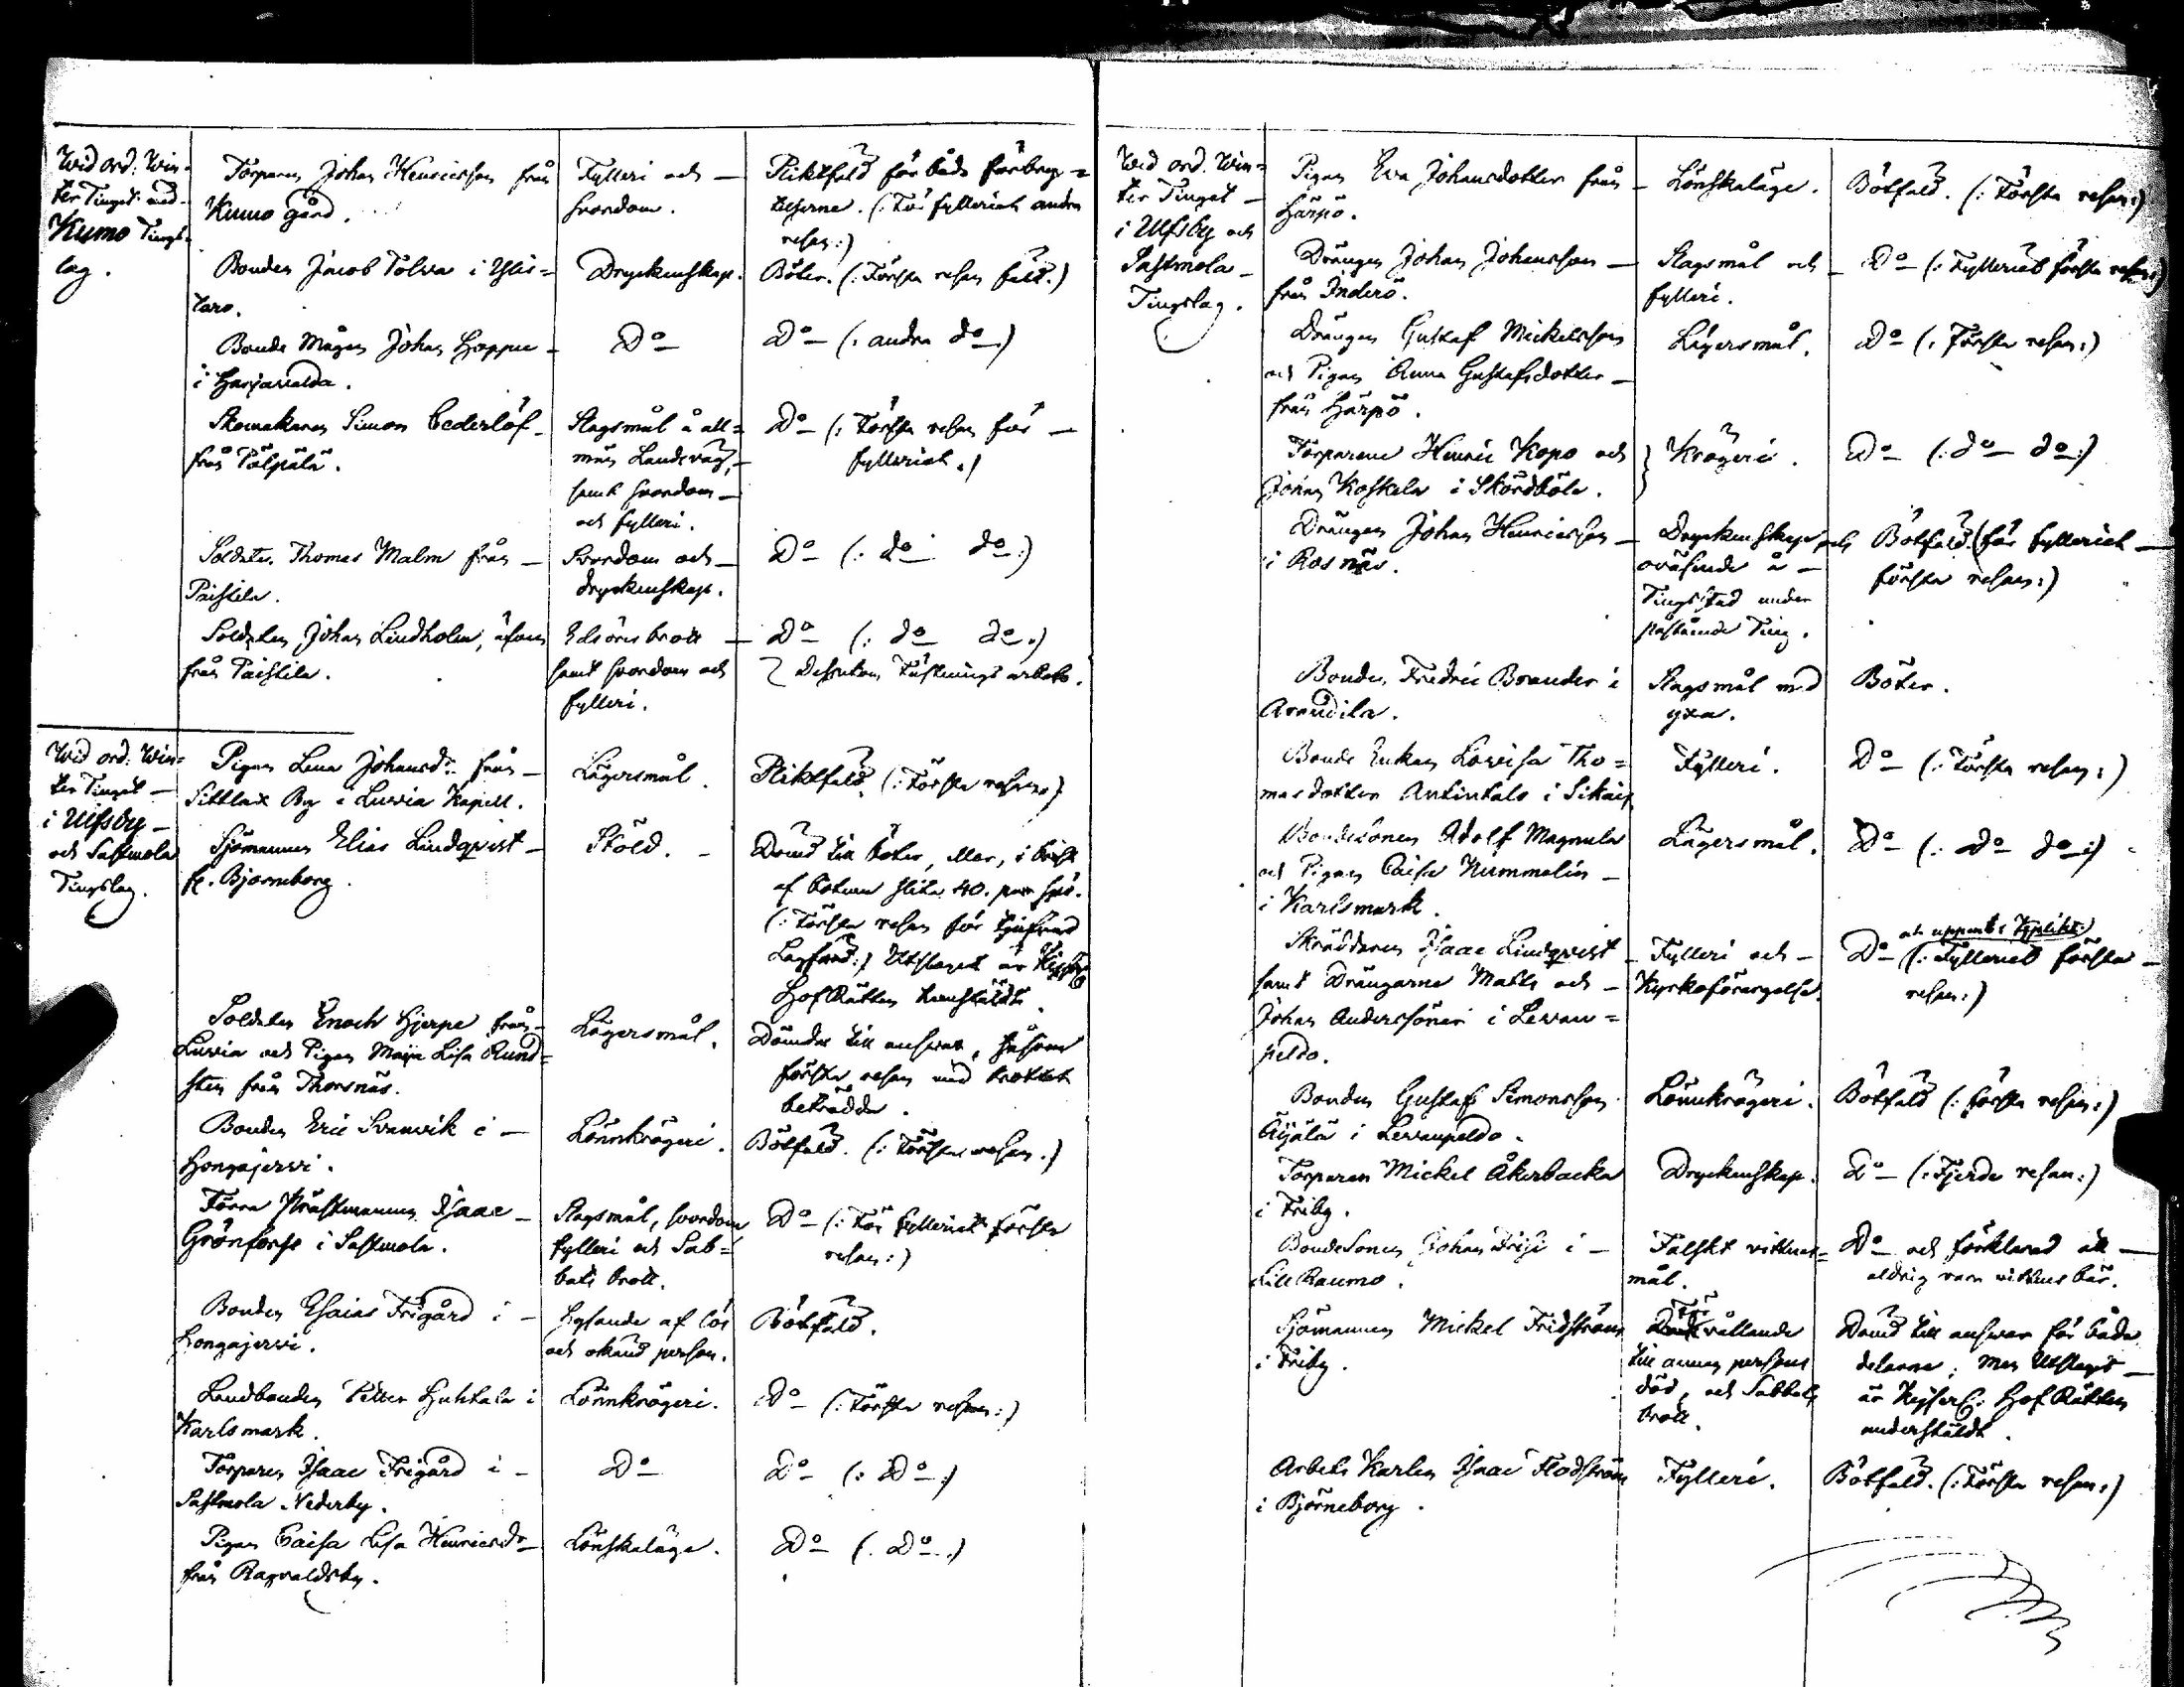 Wid ord: Win-
ter Tinget med
Kumo Tings-
lag.
Torparen Johan Henricsson från
Kumo gård.
Fylleri och
svordom.
Pliktfäld för båda förbry-
telserne. (: För fylleriet andra
resan :)
Bonden Jacob Tolva i Ylis-
taro.
Dryckenskap.
Böter. (: Första resan fäld.)
Bonde Mågen Johan Hoppu
i Harjavalda.
Do
Do (: andra do :)
Skomakaren Simon Cederlöf
från Pälpälä.
Slagsmål å all-
män Landsväg,
samt svordom
och fylleri.
Do (: Första resan för
fylleriet :)
Soldaten Thomas Malm från
Paistila.
Svordom och
dryckenskap.
Do (: do do :)
Soldaten Johan Lindholm, äfven
från Paistila.
Edsöres brott
samt svordom och
fylleri.
Do (: do do :)
Dessutom Fästnings arbete.
Wid ord: Win-
ter Tinget
i Ulfsby
och Sastmola
Tingslag.
Pigan Lena Johansdr från
Sittlax By i Luvia Kapell.
Lägersmål.
Pliktfäld. (: Första resan :)
Sjömannen Elias Lindqvist
fr. Björneborg.
Stöld.
Dömd till böter, eller, i brist
af botum slita 40. par spö.
(: Första resan för tjufnad
Lagförd :) Utslaget är Kejserl:
HofRätten hemstäldt.
Soldaten Enoch Hjerpe från
Luvia och Pigan Maja Lisa Rund-
sten från Thorsnäs.
Lägersmål.
Dömde till answar, såsom
första resan med brottet
beträdde.
Bonden Eric Svenvik i
Hongajervi.
Lönnkrögeri.
Bötfäld. (: Första resan :)
Förra Prästmannen Isaac
Grönfors i Sastmola.
Slagsmål, svordom
fylleri och Sab-
bats brott.
Do (: För fylleriet första
resan :)
Bonden Esaias Frigård i
Hongajervi.
Hysande af lös
och okänd person.
Bötfäld.
Landbonden Petter Huhtala i
Karlsmark.
Lönnkrögeri.
Do (: Första resan :)
Torparen Isaac Frigård i
Sastmola Nederby.
Do
Do (: Do :)
Pigan Caisa Lisa Henricsdr
från Ragvaldsby.
Lönskaläge.
Do (: Do :)
Wid ord. Win-
ter Tinget
i Ulfsby och
Sastmola
Tingslag.
Pigan Eva Johansdotter från
Härpö.
Lönskaläge.
Bötfäld. (: Första resan :)
Drängen Johan Johansson
från Inderö.
Slagsmål och
fylleri.
Do (: Fylleriet första resan :)
Drängen Gustaf Mickelsson
och Pigan Anna Gustafsdotter
från Härpö.
Lägersmål.
Do (: Första resan :)
Torparene Henric Kopo och
Johan Koskela i Skördböle.
Krögeri.
Do (: do do :)
Drängen Johan Henricsson
i Rosnäs.
Dryckenskap och
oväsende å
Tingsstad under
påstående Ting.
Bötfäld. (för fylleriet
första resan :)
Bonden Fredric Brander i
Arandila.
Slagsmål med
yxa.
Böter.
Bonde Enkan Lovisa Tho-
masdotter Antintalo i
Fylleri.
Do (: Första resan :)
Bondesonen Adolf Magnula
och Pigan Caisa Nummelin
i Karlsmark.
Lägersmål.
Do (: do do :)
Skräddaren Isaac Lindqvist
samt Drängarne Matts och
Johan Anderssöner i Levan-
peldo.
Fylleri och
Kyrkoförargelse.
och uppenb: Kyplikt:
Do (: Fylleriet första
resan :)
Bonden Gustaf Simonsson
Äijälä i Levanpeldo.
Lönnkrögeri.
Bötfäld (: första resan :)
Torparen Mickel Åkerbacka
i Friby.
Dryckenskap.
Do (: Fjerde resan :)
BondeSonen Johan Frisi i
Lill Raumo.
Falskt vittnes-
mål.
Do och förklarad att
aldrig vara vittnes bär.
Sjömannen Mickel Fridström
i Friby.
För
vållande
till annan persons
död, och Sabbats
brott.
Dömd till answar för båda
delarne; men Utslaget
är Kejserl: HofRätten
understäldt.
Arbets Karlen Isaac Flodström
i Björneborg.
Fylleri.
Bötfäld. (: Första resan :)